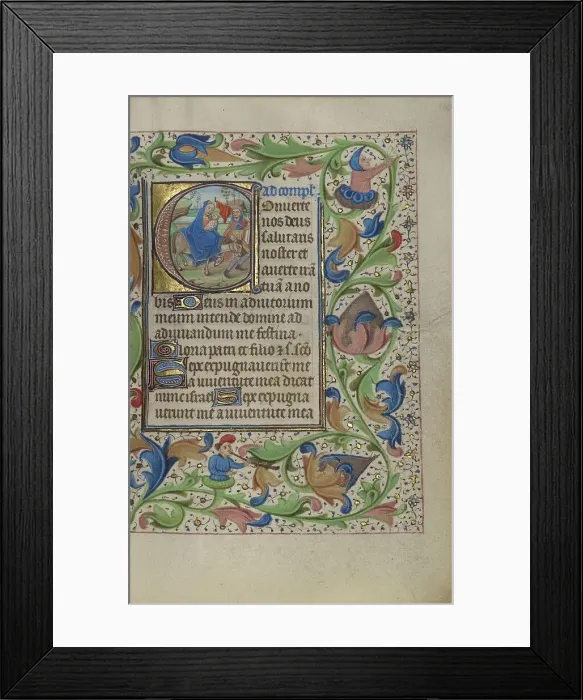 ad compl'.
Onuerte
nos deus
salutaris
noster et
auerte irā
tuā a no
bis Deus in adiutorium
meum intende domine ad
adiuuandum me festina.
Gloria patri et filio & s. scō
Sepe expugnauerūt me
a iuuentute mea dicat
nunc isrł Sepe expugna
uerunt me a iuuentute mea